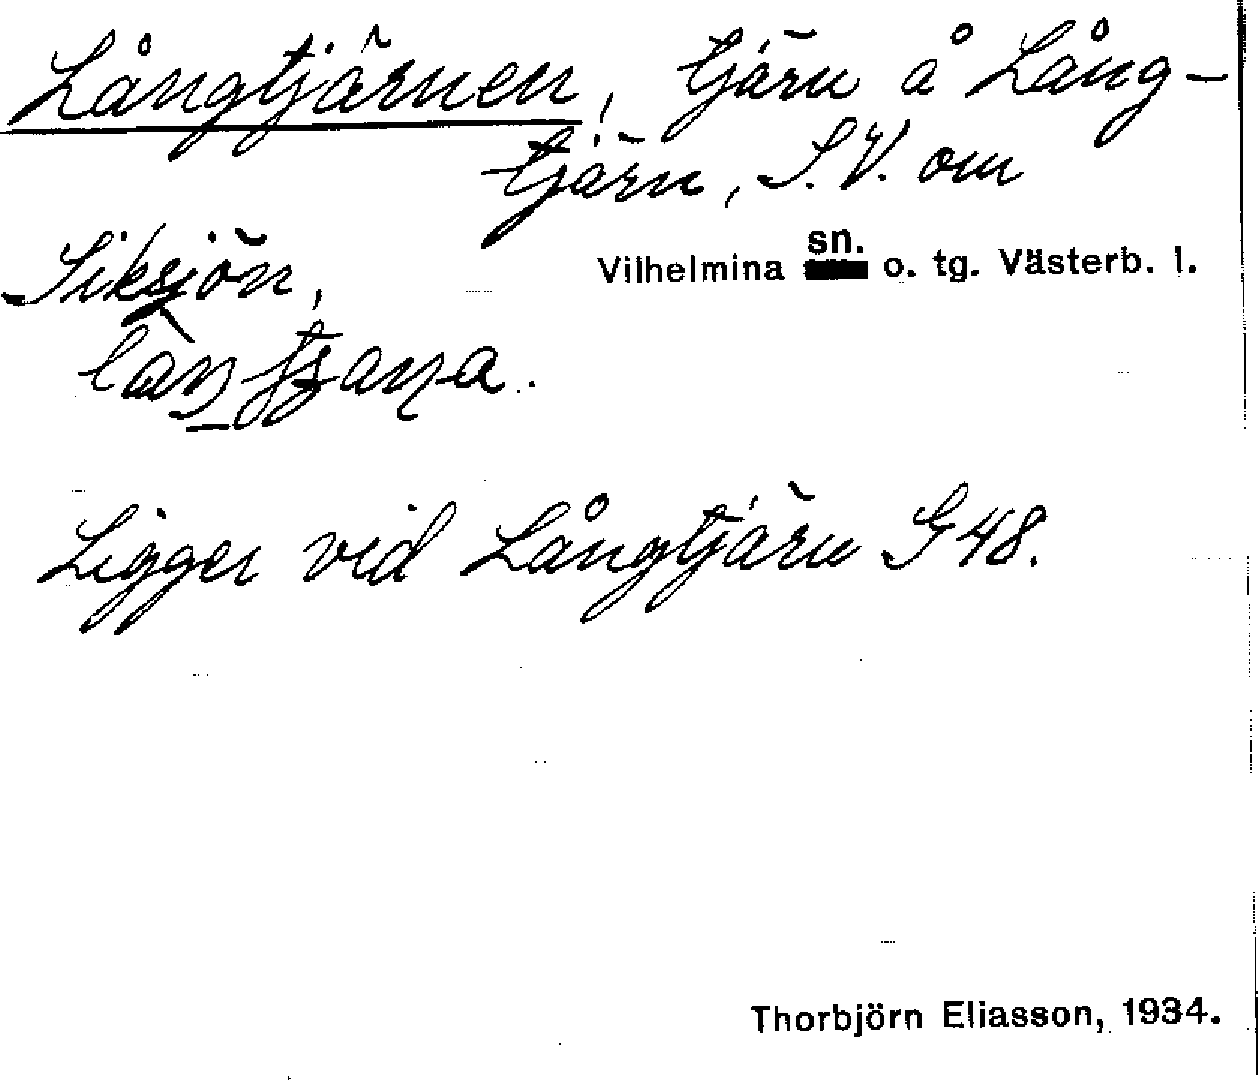 Långtjärnen, tjärn å Lång-
tjärn, S.V. om
Siksjön,
Vilhelmina sn. o. tg. Västerb. l.
Ligger vid Långtjärn G 48.
Thorbjörn Eliasson, 1934.